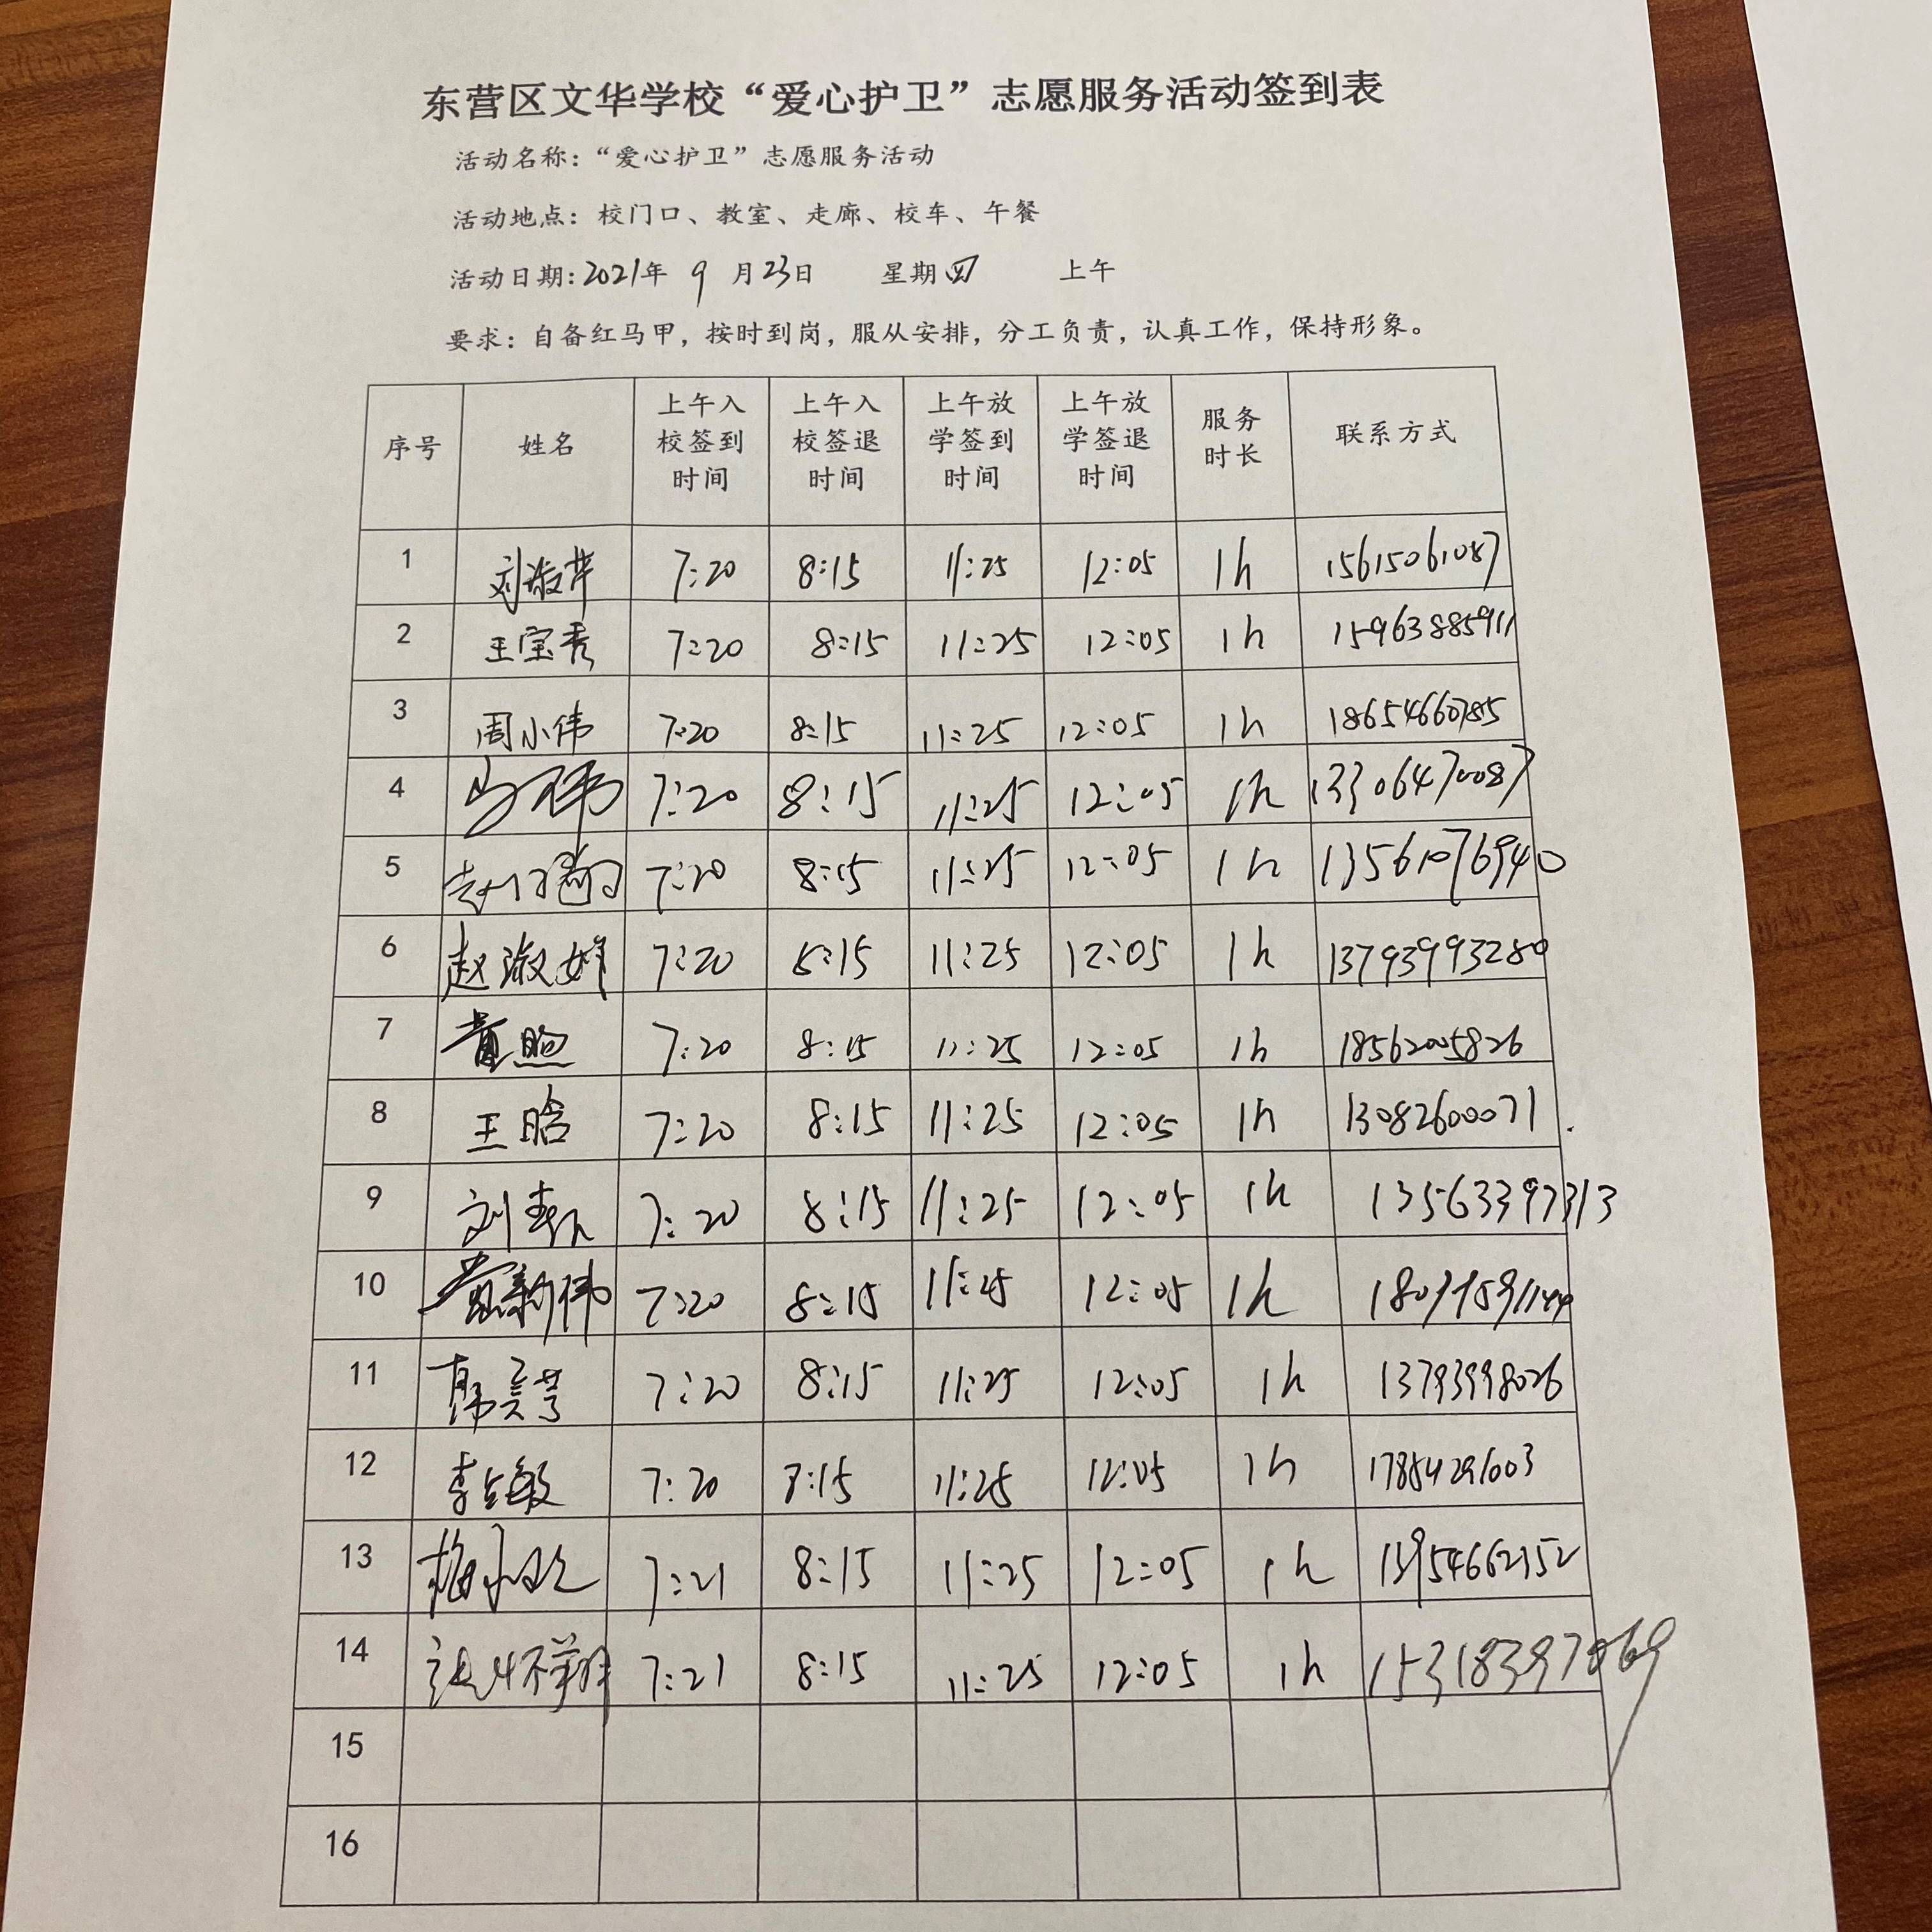 东营区文华学校“爱心护卫”志愿服务活动签到表
活动名称：“爱心护卫”志愿服务活动
活动地点：校门口、教室、走廊、校车、午餐
活动日期：2021年 9 月23日 星期四 上午
要求：自备红马甲，按时到岗，服从安排，分工负责，认真工作，保持形象。
序号 姓名 上午入校签到时间 上午入校签退时间 上午放学签到时间 上午放学签退时间 服务时长 联系方式
1 刘淑芹 7:20 8:15 11:25 12:05 1h 15615061087
2 王宝秀 7:20 8:15 11:25 12:05 1h 15963885911
3 周小伟 7:20 8:15 11:25 12:05 1h 18654660785
4 7:20 8:15 11:25 12:05 1h 13306470087
5 7:20 8:15 11:25 12:05 1h 13561076940
6 赵淑娟 7:20 8:15 11:25 12:05 1h 13793993280
7 黄煦 7:20 8:15 11:25 12:05 1h 18562005826
8 王晗 7:20 8:15 11:25 12:05 1h 13082600071
9 刘 7:20 8:15 11:25 12:05 1h 13563397313
10 黄新伟 7:20 8:15 11:25 12:05 1h
11 7:20 8:15 11:25 12:05 1h 13793998026
12 李敏 7:20 8:15 11:25 12:05 1h 17854291003
13 7:21 8:15 11:25 12:05 1h 13954662152
14 7:21 8:15 11:25 12:05 1h 15318397869
15
16